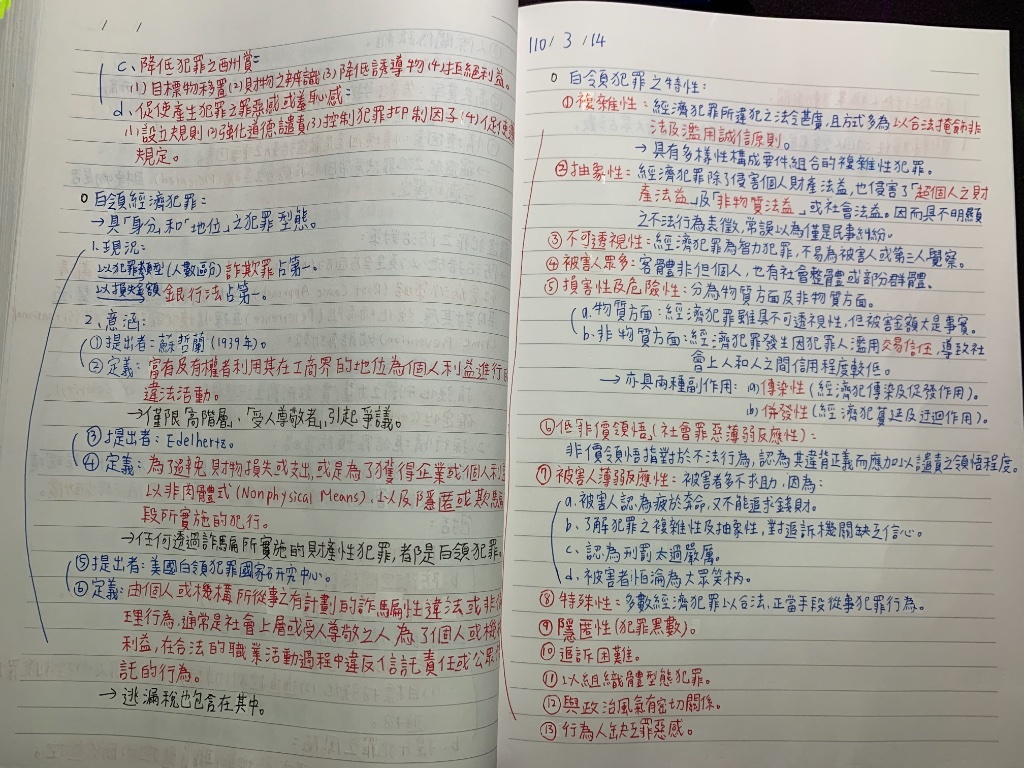 / /
c、降低犯罪之酬賞=
(1)目標物移置(2)財物之辨識(3)降低誘導物(4)拒絕利益。
d、促使產生犯罪之罪惡感或羞恥感=
(1)設立規則(2)強化道德譴責(3)控制犯罪抑制因子(4)促使遵
規定。
○白領經濟犯罪:
→具「身分」和「地位」之犯罪型態。
1、現況:
以犯罪類型(人數區分)詐欺罪占第一。
以損失金額 銀行法占第一。
2、意涵:
①提出者:蘇哲蘭(1939年)。
②定義:富有及有權者利用其在工商界的地位為個人利益進行的
違法活動。
→僅限「高階層」、「受人尊敬者」,引起爭議。
③提出者:Edelhertz。
④定義:為了避免財物損失或支出,或是為了獲得企業或個人利
以非肉體式(Nonphysical Means)、以及隱匿或欺騙
段所實施的犯行。
→任何透過詐騙所實施的財產性犯罪,都是白領犯罪。
⑤提出者:美國白領犯罪國家研究中心。
⑥定義:由個人或機構所從事之有計劃的詐騙性違法或非倫
理行為,通常是社會上層或受人尊敬之人為了個人或機構
利益,在合法的職業活動過程中違反信託責任或公眾
託的行為。
→逃漏稅也包含在其中。
110/3/14
○白領犯罪之特性:
①複雜性:經濟犯罪所違犯之法令甚廣,且方式多為以合法掩飾非
法及濫用誠信原則。
→具有多樣性構成要件組合的複雜性犯罪。
②抽象性:經濟犯罪除了侵害個人財產法益,也侵害了「超個人之財
產法益」及「非物質法益」或社會法益。因而具不明顯
之不法行為表徵,常誤以為僅是民事糾紛。
③不可透視性:經濟犯罪為智力犯罪,不易為被害人或第三人警察。
④被害人眾多:客體非但個人,也有社會整體或部分群體。
⑤損害性及危險性:分為物質方面及非物質方面。
a.物質方面:經濟犯罪雖具不可透視性,但被害金額大是事實。
b.非物質方面:經濟犯罪發生因犯罪人濫用交易信任,導致社
會上人和人之間信用程度較低。
→亦具兩種副作用:(a)傳染性(經濟犯傳染及促發作用)。
(b)併發性(經濟犯蔓延及迂迴作用)。
⑥低非價領悟(社會罪惡薄弱反應性):
非價領悟指對於不法行為,認為其違背正義而應加以譴責之領悟程度。
⑦被害人薄弱反應性:被害者多不求助,因為:
a.被害人認為疲於奔命,又不能追求錢財。
b.了解犯罪之複雜性及抽象性,對追訴機關缺乏信心。
c.認為刑罰太過嚴厲。
d.被害者怕淪為大眾笑柄。
⑧特殊性:多數經濟犯罪以合法、正當手段從事犯罪行為。
⑨隱匿性(犯罪黑數)。
⑩追訴困難。
⑪以組織體型態犯罪。
⑫與政治風氣有密切關係。
⑬行為人缺乏罪惡感。